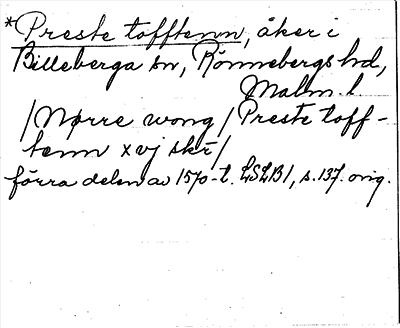 *Preste tofftenn, åker i
Billeberga sn, Rönnebergs hd,
Malm. l.
/Nørre wong/Preste toff-
tenn xvj skr̄/
förra delen av 1570-t. LSLB1, s.137. orig.